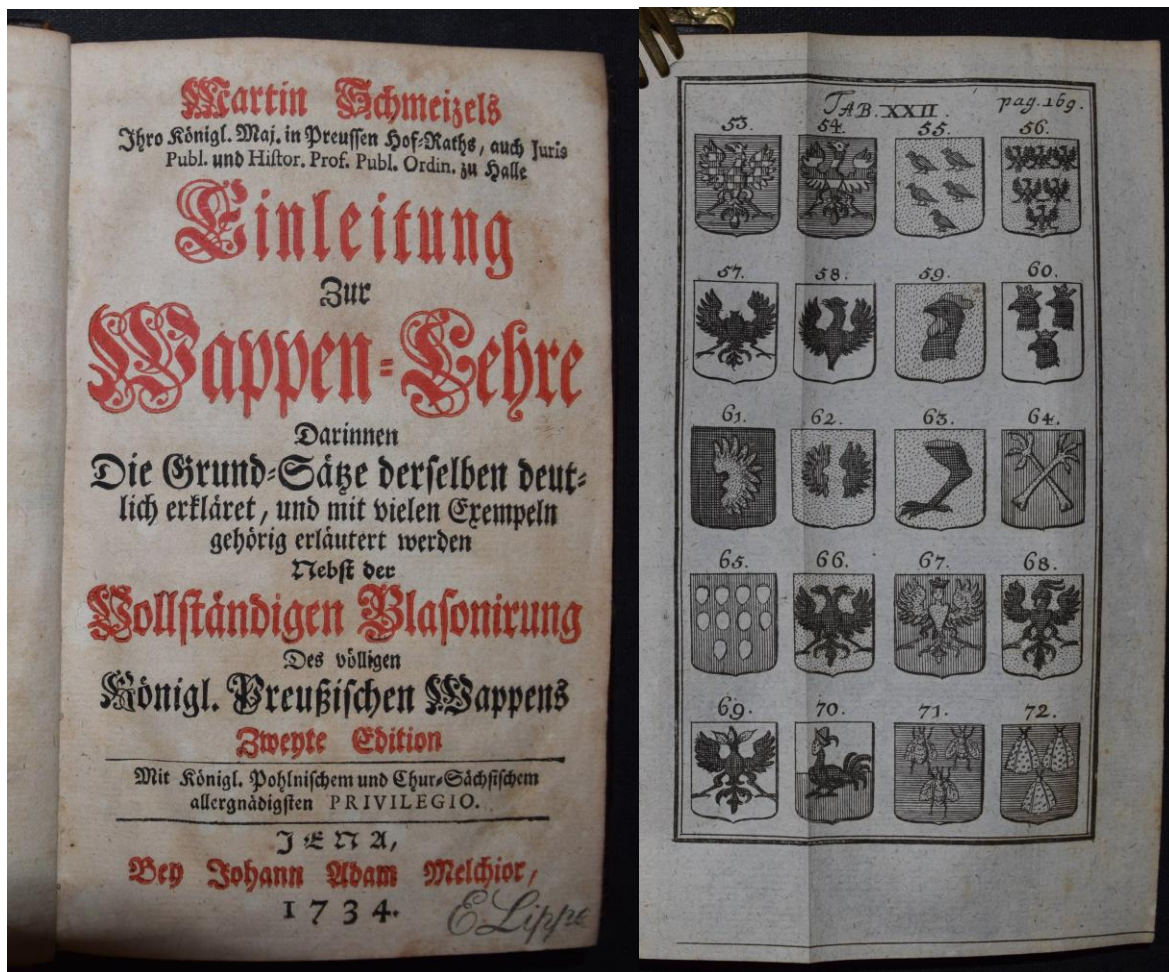 Martin Schmeizels
Ihro Königl. Maj. in Preussen Hof-Raths, auch Juris
Publ. und Histor. Prof. Publ. Ordin. zu Halle
Einleitung
Zur
Wappen-Lehre
Darinnen
Die Grund-Sätze derselben deut-
lich erkläret, und mit vielen Exempeln
gehörig erläutert werden
Nebst der
Vollständigen Blasonirung
Des völligen
Königl. Preußischen Wappens
Zweyte Edition
Mit Königl. Pohlnischem und Chur-Sächsischem
allergnädigsten PRIVILEGIO.
JENA,
Bey Johann Adam Melchior,
1734.
E Lippe
TAB. XXII pag. 169.
53. 54. 55. 56.
57. 58. 59. 60.
61. 62. 63. 64.
65. 66. 67. 68.
69. 70. 71. 72.